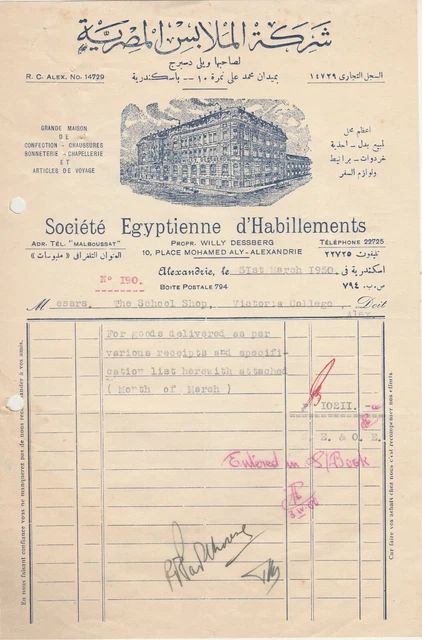 شركة الملابس المصرية
لصاحبها ويلى دسبرج
R. C. ALEX. No. 14729
بميدان محمد على نمرة ١٠ - باسكندرية
السجل التجارى ١٤٧٢٩
GRANDE MAISON
DE
CONFECTION - CHAUSSURES
BONNETERIE - CHAPELLERIE
ET
ARTICLES DE VOYAGE
اعظم محل
لبيع بدل - احذية
خردوات - برانيط
ولوازم السفر
Société Egyptienne d'Habillements
ADR. TÉL. "MALBOUSSAT"
PROPR. WILLY DESSBERG
TÉLÉPHONE 22725
العنوان التلغرافى « ملبوسات »
10, PLACE MOHAMED ALY - ALEXANDRIE
تليفون ٢٢٧٢٥
Alexandrie, le 31st March 1950. اسكندرية فى
No 190.
BOITE POSTALE 794
ص . ب . ٧٩٤
Messrs. The School Shop, Victoria College Doit
Alex.
For goods delivered as per
various receipts and specifi-
cation list herewith attached
( Month of March )
10211. -
E. & O. E.
Entered in S/Book
En nous faisant confiance vous ne manquerez pas de nous recommander à vos amis.
Car faire vos achats chez nous c'est recompenser nos clients.